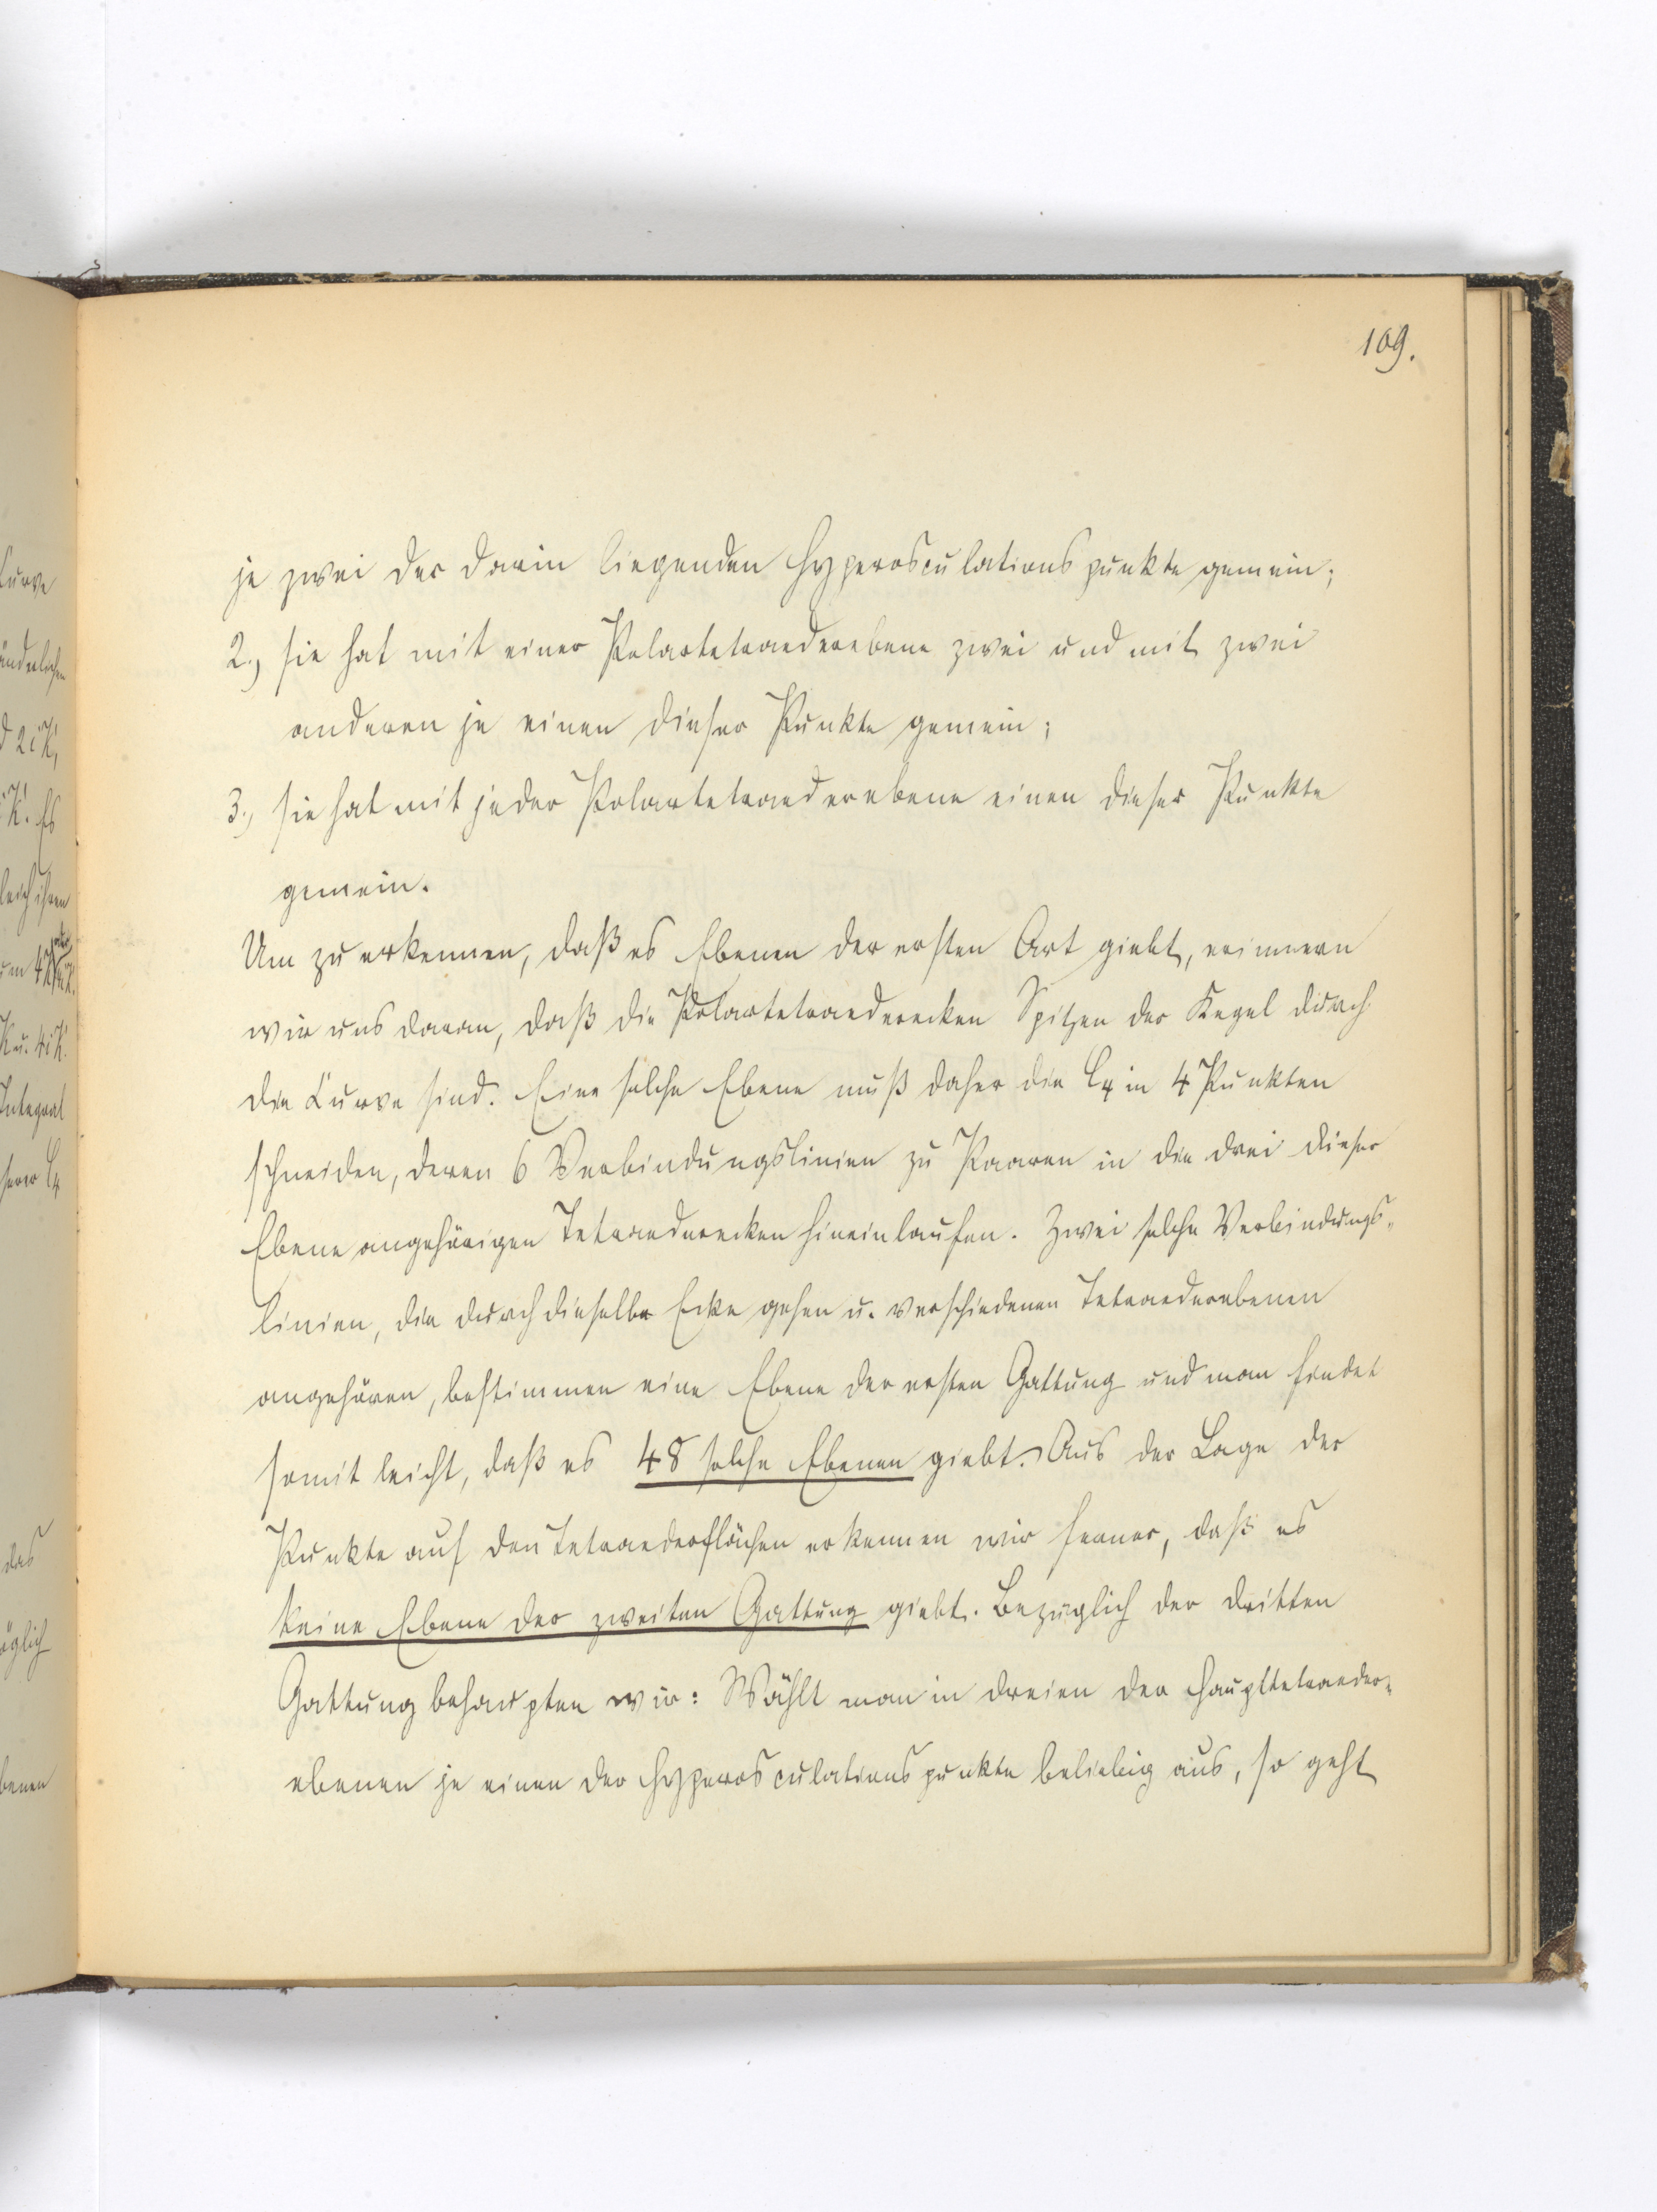 109.
je zwei der darin liegenden Hyperosculationspunkte gemein;
2., sie hat mit einer Polartetraederebene zwei und mit zwei
anderen je einen dieser Punkte gemein;
3., sie hat mit jeder Polartetraederebene einen dieser Punkte
gemein.
Um zu erkennen, daß es Ebenen der ersten Art giebt, erinnern
wir uns daran, daß die Polartetraederecken Spitzen der Kegel durch
die Curve sind. Eine solche Ebene muß daher die C4 in 4 Punkten
schneiden, deren 6 Verbindungslinien zu Paaren in die drei dieser
Ebene angehörigen Tetraederecken hineinlaufen. Zwei solche Verbindungs-
linien, die durch dieselbe Ecke gehen u. verschiedenen Tetraederebenen
angehören, bestimmen eine Ebene der ersten Gattung und man findet
somit leicht, daß es 48 solche Ebenen giebt. Aus der Lage der
Punkte auf den Tetraederflächen erkennen wir ferner, daß es
keine Ebene der zweiten Gattung giebt. Bezüglich der dritten
Gattung behaupten wir: Wählt man in dreien der Haupttetraeder-
ebenen je einen der Hyperosculationspunkte beliebig aus, so geht